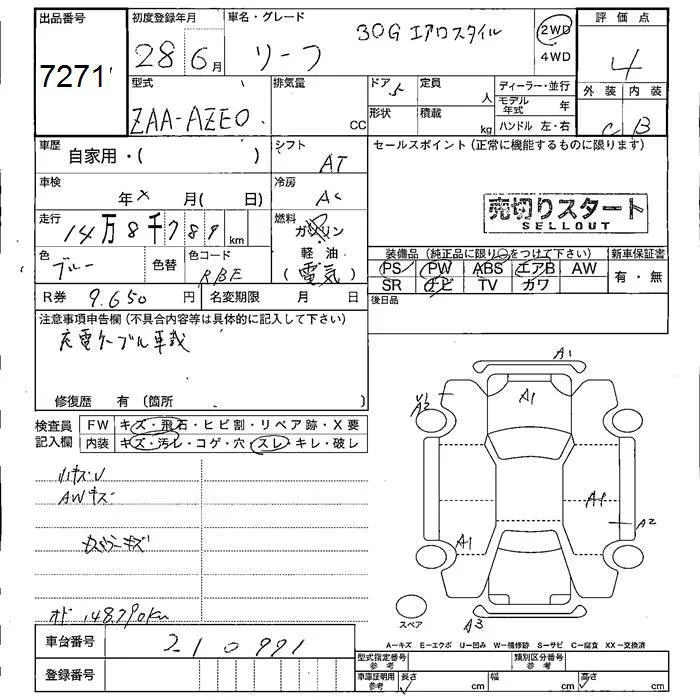 出品番号 初度登録年月 車名・グレード 評価点
7271 28 6月 リーフ 30G エアロスタイル 2WD 4WD 4
型式 排気量 ドア 5 定員 人 ディーラー・並行 外装 内装
ZAA-AZE0 CC 形状 積載 kg モデル年式 年 C B
ハンドル 左・右
車歴 自家用・( ) シフト AT セールスポイント(正常に機能するものに限ります)
車検 年 × 月( 日) 冷房 AC
売切りスタート
SELLOUT
走行 14万8千789km 燃料 ガソリン
軽油
(電気)
色 ブルー 色替 色コード RBE
装備品(純正品に限り○をつけて下さい) 新車保証書
PS PW ABS エアB AW 有・無
SR ナビ TV カワ
R券 9,650円 名変期限 月 日 後日品
注意事項申告欄(不具合内容等は具体的に記入して下さい)
充電ケーブル車載
修復歴 有(箇所 )
検査員記入欄 FW キズ・飛石・ヒビ割・リペア跡・X要
内装 キズ・汚レ・コゲ・穴・スレ・キレ・破レ
A1
A1
A2
小キズU
AWキズ
A1
A2
A1
オド 148790km
スペア
A3
A-キズ E-エクボ U-凹み W-補修跡 S-サビ C-腐食 XX-交換済
車台番号 210991
型式指定番号 参考 類別区分番号 参考
登録番号
車庫証明用 参考 長さ cm 幅 cm 高さ cm